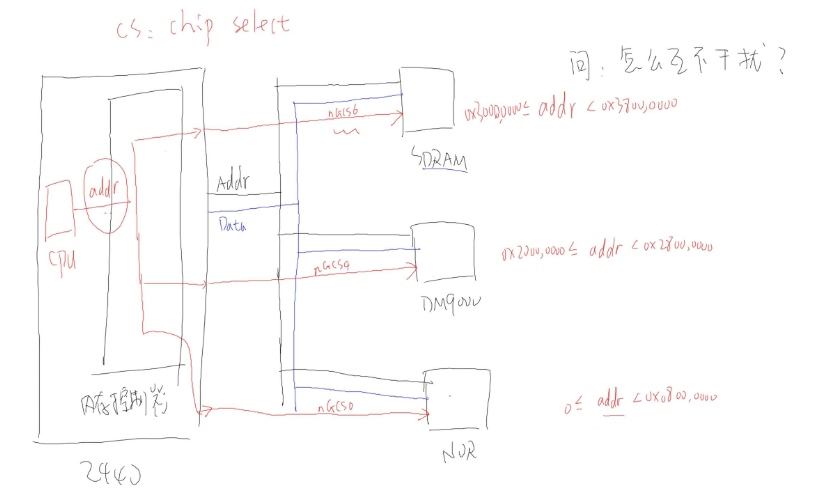 cs: chip select
问: 怎么互不干扰?
nGCS6
0x3000,0000≤ addr < 0x3800,0000
SDRAM
addr
Addr
Data
CPU
nGCS4
0x2000,0000≤ addr < 0x2800,0000
DM9000
内存控制器
nGCS0
0≤ addr < 0x0800,0000
NOR
2440